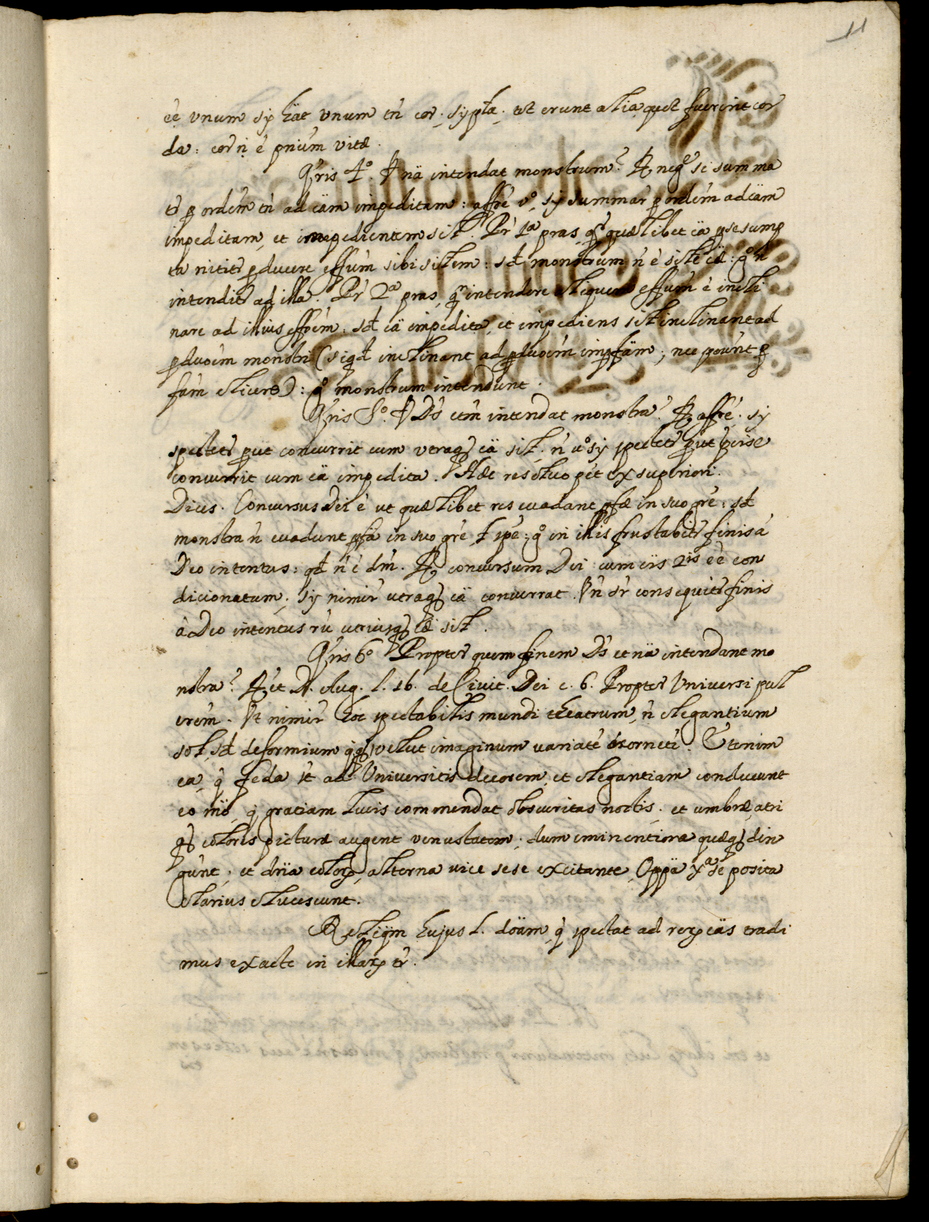 11
eē unum sy hāc unum tn̄ cor, tot erunt alia quot fuerint cor
da: cor n. ē pnium vitæ.
Qris 4º. nā intendat monstrum? neqʒ si summa
tr̄ ordem tn̄ ad cām impeditam: affre vº, sy summar ordem ad cām
impeditam, et impedientem sil. Pr 1ª pras, qꝛ quælibet cā pse sump
ta nitir pducere effum sibi silem: sd monstrum n̄ ē sile cā: gº n̄
intendit ad illa. Pr 2ª pras, qꝛ intendere aliquem effum ē incli
nare ad illius effem: sd cā impedita, et impediens sil inclinant ad
pduoēm monstri (siqd inclinant ad pduoēm impfām, nec pount p
fām elicere): gº monstrum intendunt.
Qris 5º. Ds etm intendat monstra? affre. sy
spectetr put concurrit cum utraqʒ cā sil. n̄ vº sy spectetr put pcise
concurrit cum cā impedita. Hæc resoluo pet ex superiori.
Dices. Concursus Dei ē ut quælibet res evadant pfæ in suo gre: sd
monstra n̄ evadunt pfa in suo gre, spe: gº in illis frustabitr finis a
Deo intentus: qd n̄ ē dm. concursum Dei cum iis 2is eē con
dicionatum, sy nimir utraqʒ cā concurrat. Un̄ sr consequitr finis
à Deo intentus rū utriusqʒ cæ sil.
Qris 6º. Propter quem finem Ds et nā intendant mo
nstra? et D. Aug. l. 16. de Civit. Dei c. 6. Propter Universi pul
crem. Ut nimir hoc spectabilis mundi theatrum, n̄ elegantium
sol, sd deformium qqʒ velut imaginum variate exornetr. Etenim
ea, q̄ fæda st ad Universitis decorem, et elegantiam conducunt
eo mō, q̄ gratiam lucis commendat obscuritas noctis, et umbræ, atri
qʒ coloris picturæ augent venustatem. dum eminentiora quæqʒ din
gunt, et dria color, alterna vice sese excitante. Oppā iª se posita
clarius elucescunt.
Reliqm hujus l. doām, q̄ spectat ad rerʒ cās tradi
mus exacte in illarʒ tr̄.